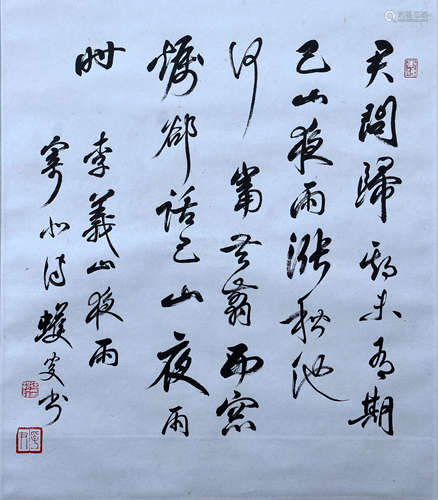 君問歸期未有期
巴山夜雨漲秋池
何當共翦西窗
燭卻話巴山夜雨
時
李義山夜雨
寄北詩 叟書